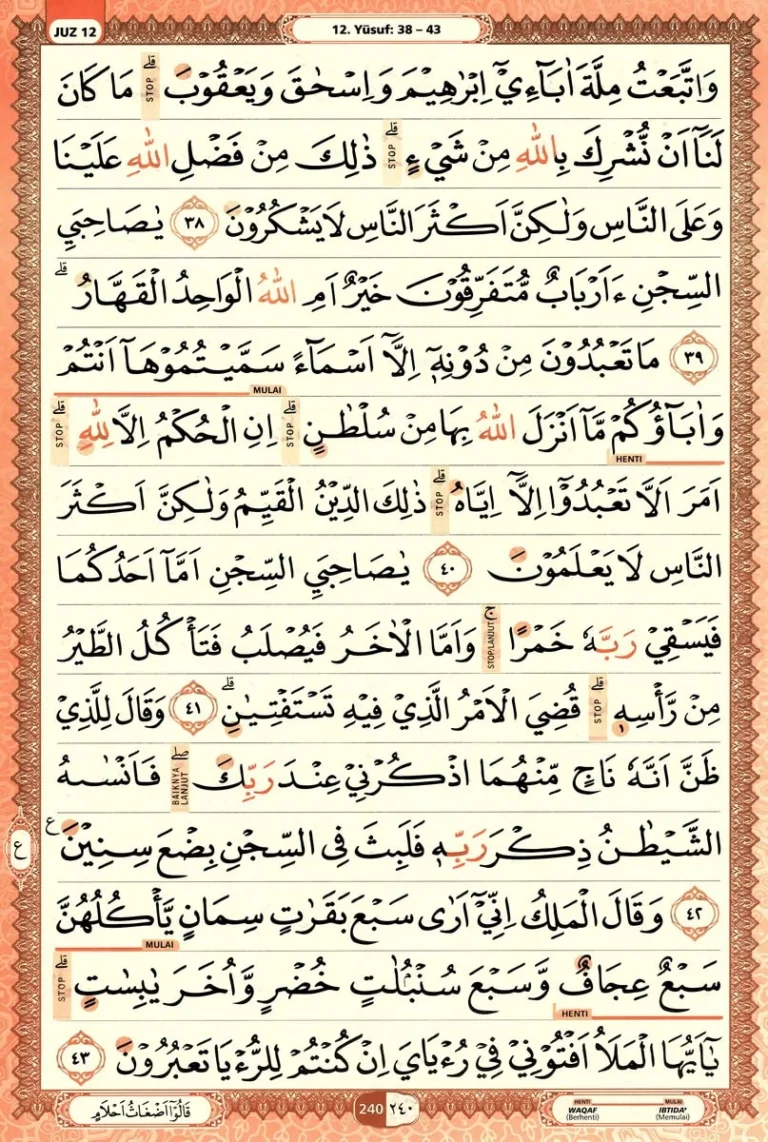 JUZ 12
12. Yūsuf: 38 – 43
وَاتَّبَعْتُ مِلَّةَ اٰبَاۤءِيْٓ اِبْرٰهِيْمَ وَاِسْحٰقَ وَيَعْقُوْبَۗ STOP مَا كَانَ
لَنَآ اَنْ نُّشْرِكَ بِاللّٰهِ مِنْ شَيْءٍۗ STOP ذٰلِكَ مِنْ فَضْلِ اللّٰهِ عَلَيْنَا
وَعَلَى النَّاسِ وَلٰكِنَّ اَكْثَرَ النَّاسِ لَا يَشْكُرُوْنَ ٣٨ يٰصَاحِبَيِ
السِّجْنِ ءَاَرْبَابٌ مُّتَفَرِّقُوْنَ خَيْرٌ اَمِ اللّٰهُ الْوَاحِدُ الْقَهَّارُۗ
٣٩ مَا تَعْبُدُوْنَ مِنْ دُوْنِهٖٓ اِلَّآ اَسْمَاۤءً سَمَّيْتُمُوْهَآ اَنْتُمْ
MULAI
وَاٰبَاۤؤُكُمْ مَّآ اَنْزَلَ اللّٰهُ بِهَا مِنْ سُلْطٰنٍۗ STOP اِنِ الْحُكْمُ اِلَّا لِلّٰهِۗ STOP
HENTI
اَمَرَ اَلَّا تَعْبُدُوْٓا اِلَّآ اِيَّاهُۗ STOP ذٰلِكَ الدِّيْنُ الْقَيِّمُ وَلٰكِنَّ اَكْثَرَ
النَّاسِ لَا يَعْلَمُوْنَ ٤٠ يٰصَاحِبَيِ السِّجْنِ اَمَّآ اَحَدُكُمَا
فَيَسْقِيْ رَبَّهٗ خَمْرًاۚ STOP/LANJUT وَاَمَّا الْاٰخَرُ فَيُصْلَبُ فَتَأْكُلُ الطَّيْرُ
مِنْ رَّأْسِهٖۗ STOP قُضِيَ الْاَمْرُ الَّذِيْ فِيْهِ تَسْتَفْتِيٰنِۗ ٤١ وَقَالَ لِلَّذِيْ
ظَنَّ اَنَّهٗ نَاجٍ مِّنْهُمَا اذْكُرْنِيْ عِنْدَ رَبِّكَۖ BAIKNYA LANJUT فَاَنْسٰىهُ
الشَّيْطٰنُ ذِكْرَ رَبِّهٖ فَلَبِثَ فِى السِّجْنِ بِضْعَ سِنِيْنَ ع
ع
٤٢ وَقَالَ الْمَلِكُ اِنِّيْٓ اَرٰى سَبْعَ بَقَرٰتٍ سِمَانٍ يَّأْكُلُهُنَّ
MULAI
سَبْعٌ عِجَافٌ وَّسَبْعَ سُنْۢبُلٰتٍ خُضْرٍ وَّاُخَرَ يٰبِسٰتٍۗ STOP
HENTI
يٰٓاَيُّهَا الْمَلَاُ اَفْتُوْنِيْ فِيْ رُءْيَايَ اِنْ كُنْتُمْ لِلرُّءْيَا تَعْبُرُوْنَ ٤٣
قَالُوْٓا اَضْغَاثُ اَحْلَامٍ
240 ٢٤٠
HENTI MULAI
WAQAF IBTIDA'
(Berhenti) (Memulai)